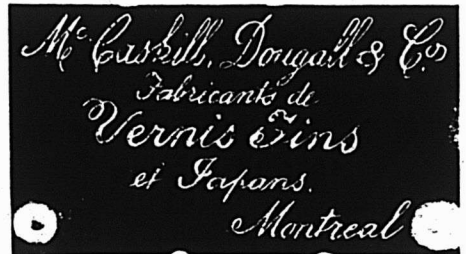 Mc Caskill, Dougall & Co
Fabricants de
Vernis Fins
et Japans.
Montreal